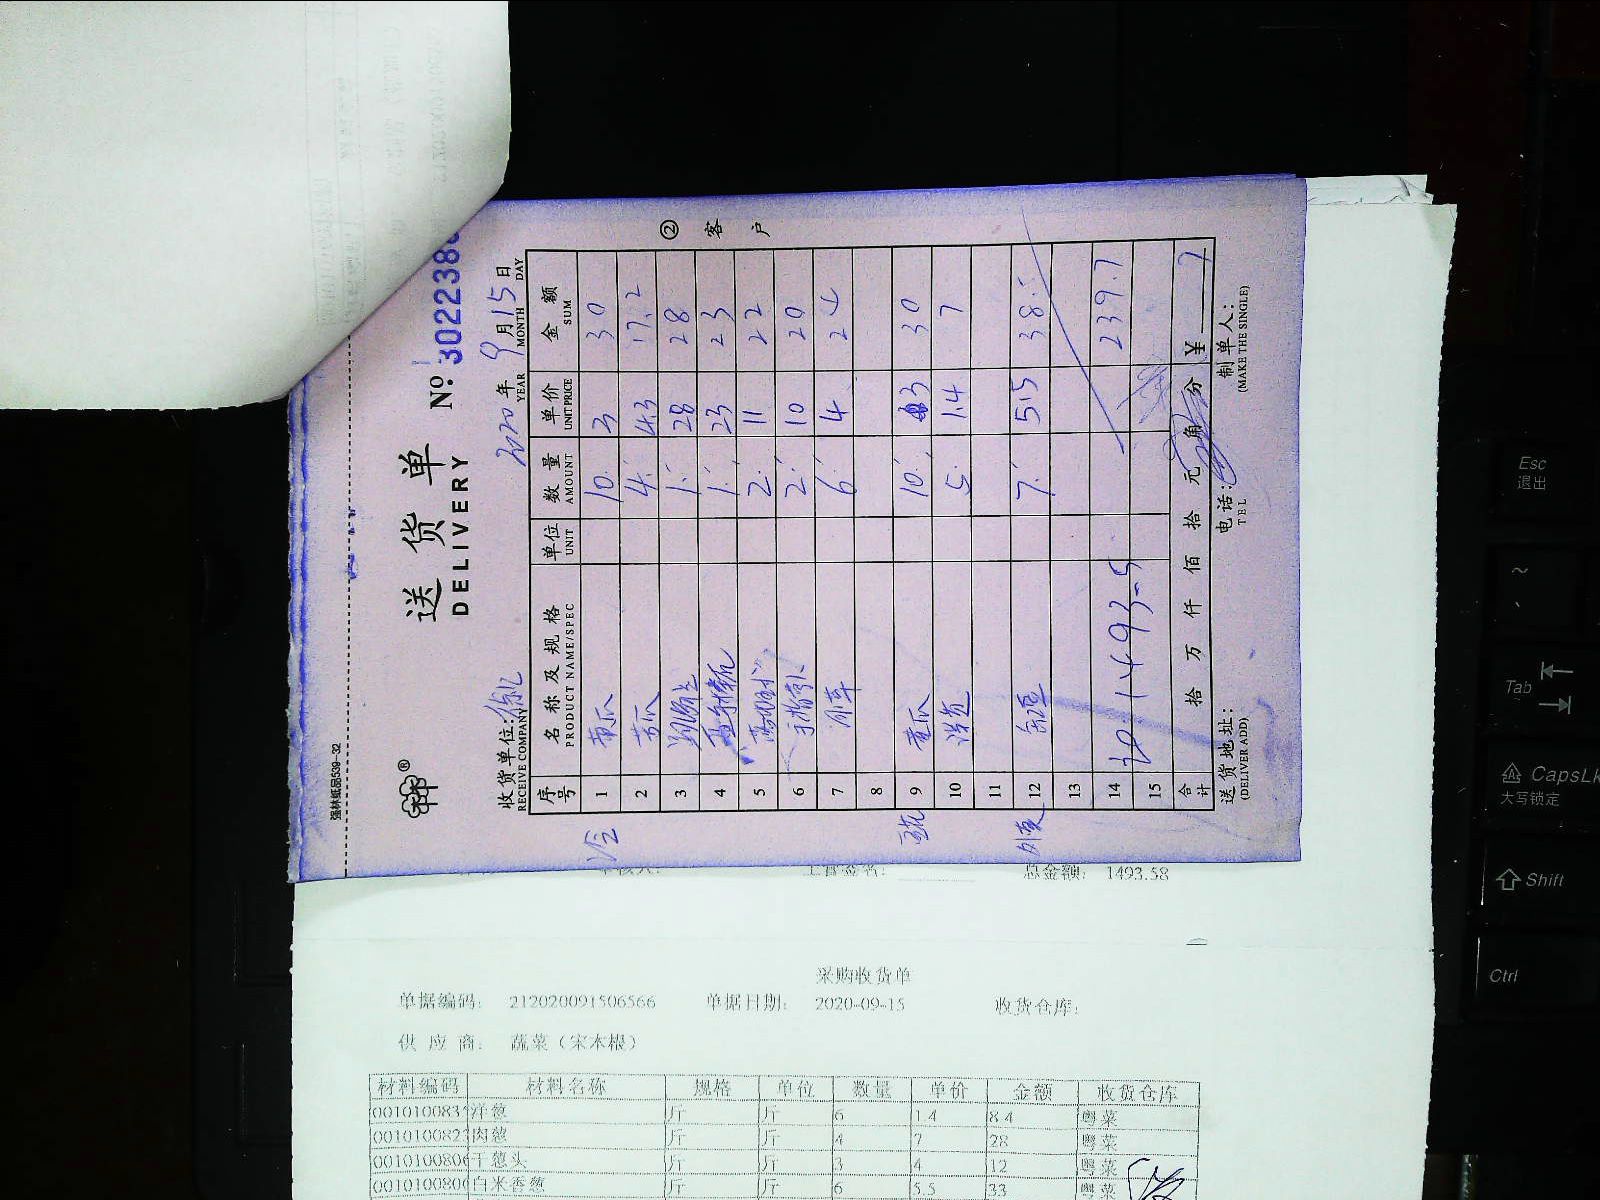 强林纸品539-32
送货单
DELIVERY
No: 3022386
2020年 9月15日
YEAR MONTH DAY
收货单位:
RECEIVE COMPANY
序号 名称及规格 单位 数量 单价 金额
PRODUCT NAME/SPEC UNIT AMOUNT UNIT PRICE SUM
1 黄瓜 10 3 30
2 苦瓜 4 4.3 17.2
3 1 28 28
4 1 23 23
5 2 11 22
6 2 10 20
7 6 4 24
8
9 黄瓜 10 3 30
10 洋葱 5 1.4 7
11
12 7 5.5 38.5
13
14 239.7
15
1493.5
合计 拾 万 仟 佰 拾 元 角 分 ¥
送货地址: 电话: 制单人:
(DELIVER ADD) TEL (MAKE THE SINGLE)
② 客户
总金额: 1493.58
采购收货单
单据编码: 212020091506566 单据日期: 2020-09-15 收货仓库:
供应商: 蔬菜(宋本根)
材料编码 材料名称 规格 单位 数量 单价 金额 收货仓库
001010083 洋葱 斤 斤 6 1.4 8.4 粤菜
001010082 肉葱 斤 斤 4 7 28 粤菜
001010080 干葱头 斤 斤 3 4 12 粤菜
001010080 白米香葱 斤 斤 6 5.5 33 粤菜
Esc
退出
~
Tab
CapsLk
大写锁定
Shift
Ctrl